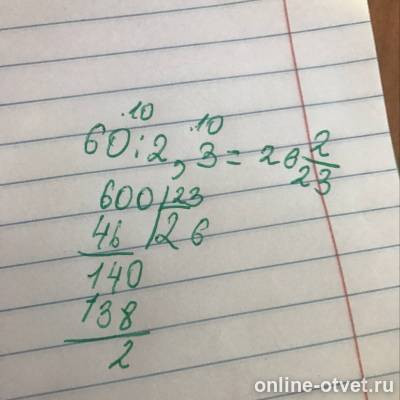 ·10 ·10
60:2,3=26 2/23
600|23
46 |26
140
138
2
online-otvet.ru